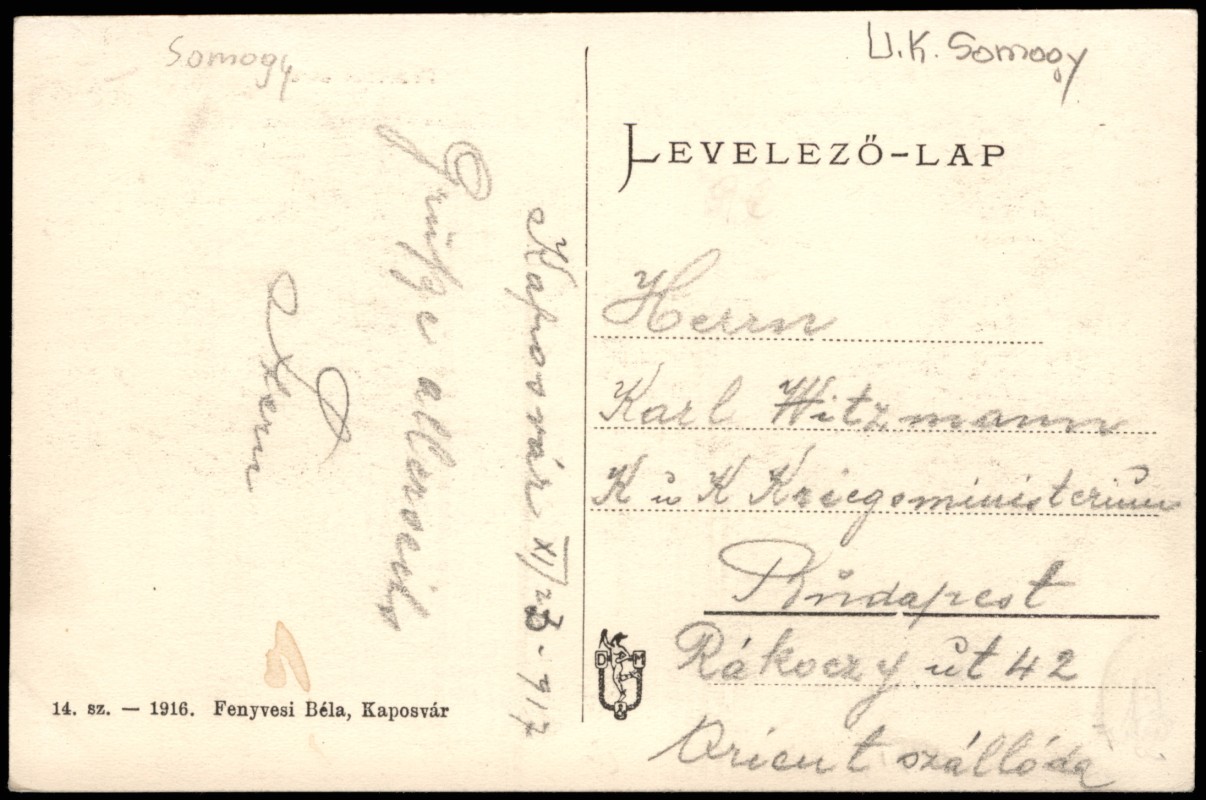 Somogy
U.K. Somogy
LEVELEZŐ-LAP
Kaposvár XI/23 - 917
Grüße allerseits
Stern
Herrn
Karl Witzmann
K u K Kriegsministerium
Budapest
Rákoczy út 42
Orient szállóda
D M
14. sz. — 1916. Fenyvesi Béla, Kaposvár